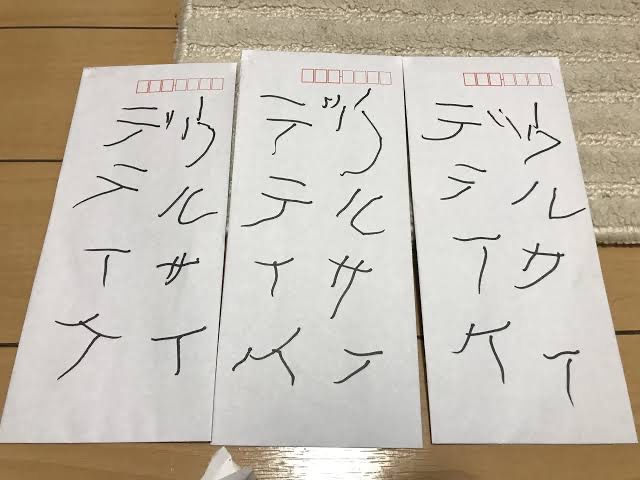 ウルサイ
デテイケ
ウルサイ
デテイケ
ウルサイ
デテイケ